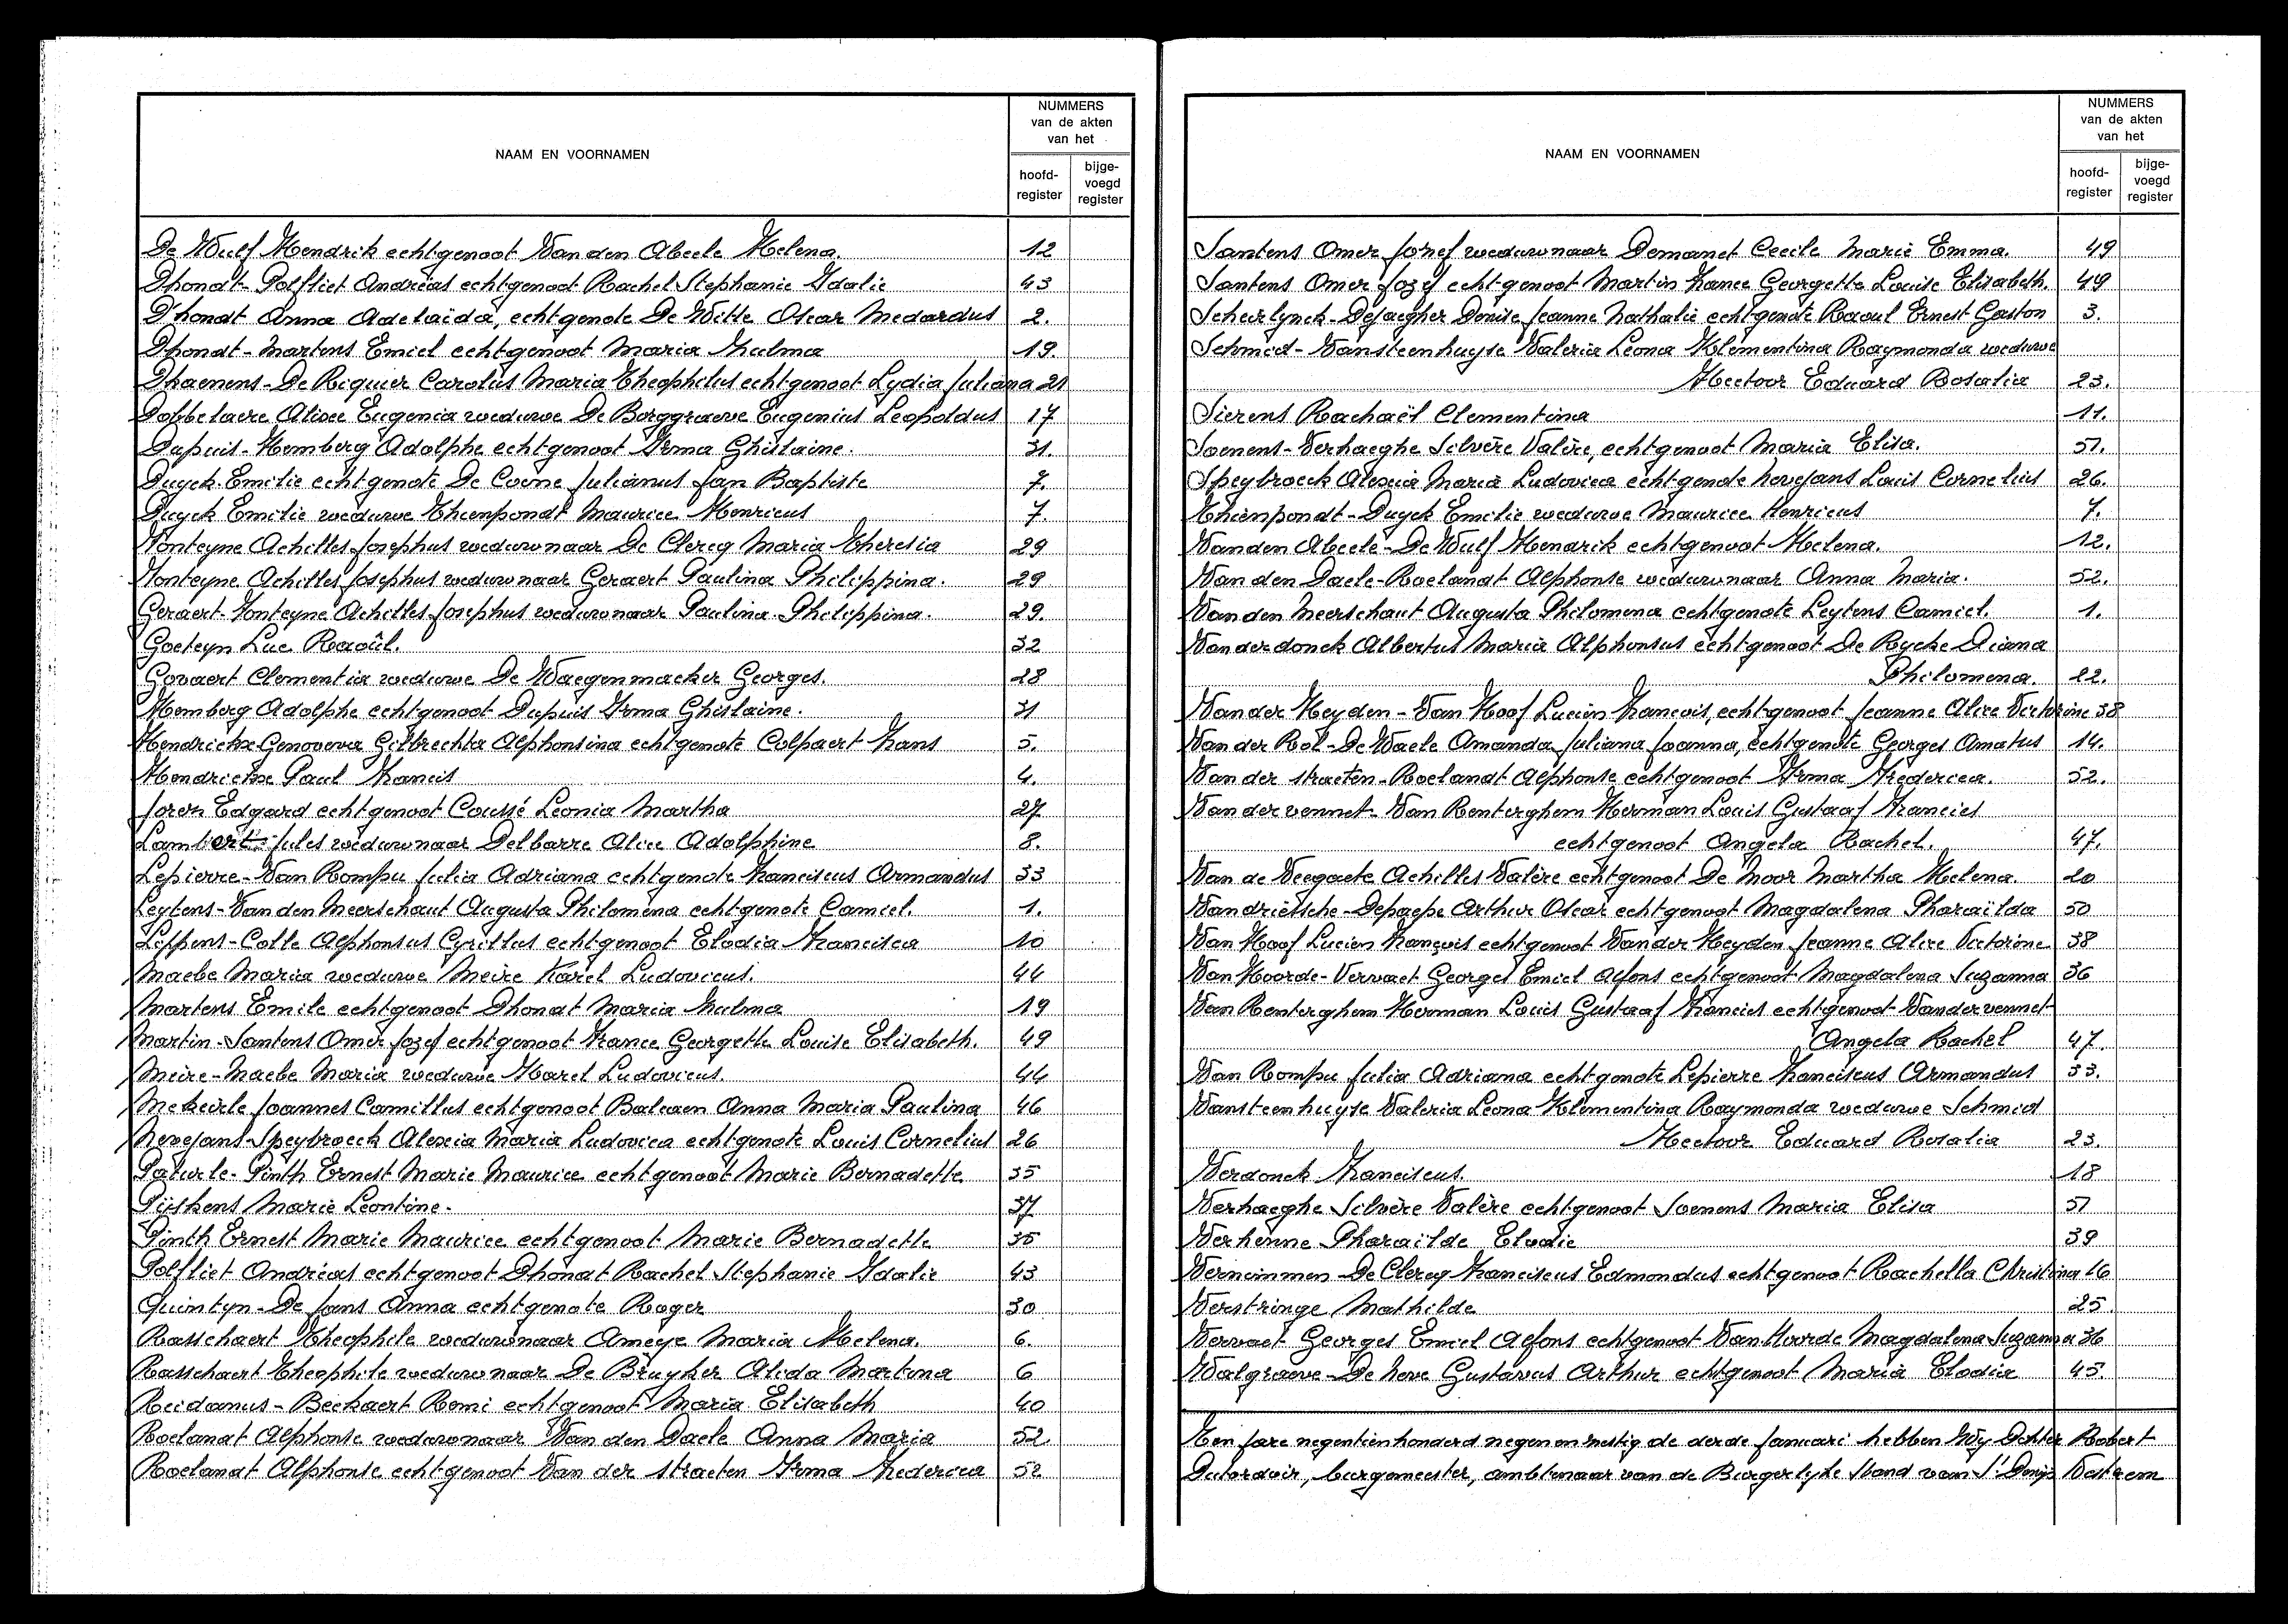 NAAM EN VOORNAMEN
NUMMERS
van de akten
van het
hoofd-
register
bijge-
voegd
register
De Wulf Hendrik echtgenoot Van den Abeele Helena. 12
Dhondt-Polfliet Andréas echtgenoot Rachel Stephanie Idalie 43
D'hondt Anna Adelaïda, echtgenote De Witte Oscar Medardus 2.
Dhondt-Martens Emiel echtgenoot Maria Zulma 19.
Dhaenens-De Riquier Carolus Maria Theophilus echtgenoot Lydia Juliana 21
Dobbelaere Alixe Eugenia weduwe De Borggraeve Eugenius Leopoldus 17
Dupuis-Homberg Adolphe echtgenoot Irma Ghislaine. 31.
Duyck Emilie echtgenote De Coene Julianus Jan Baptiste 7.
Duyck Emilie weduwe Thienpondt Maurice Henricus 7.
Fonteyne Achilles Josephus weduwnaar De Clercq Maria Theresia 29
Fonteyne Achilles Josephus weduwnaar Geraert Paulina Philippina. 29
Geraert-Fonteyne Achilles Josephus weduwnaar Paulina Philippina. 29.
Goeteyn Luc Raoûl. 32
Govaert Clementia weduwe De Waegenmaeker Georges. 28
Homberg Adolphe echtgenoot Dupuis Irma Ghislaine. 31
Hendrickx Genoveva Gilbrechta Alphonsina echtgenote Colpaert Frans 5.
Hendrickx Paul Francis 4.
Joren Edgard echtgenoot Coussé Leonia Martha 27
Lambert Jules weduwnaar Delbarre Alice Adolphine 8.
Lepierre-Van Rompu Julia Adriana echtgenote Franciscus Armandus 33
Leytens-Van den Meerschaut Augusta Philomena echtgenote Camiel. 1.
Lippens-Colle Alphonsus Cyrillus echtgenoot Elodia Francisca 10
Maebe Maria weduwe Meire Karel Ludovicus. 44
Martens Emile echtgenoot Dhondt Maria Zulma 19
Martin-Santens Omer Jozef echtgenoot France Georgette Louise Elisabeth. 49
Meire-Maebe Maria weduwe Karel Ludovicus. 44
Mekeirle Joannes Camillus echtgenoot Balcaen Anna Maria Paulina 46
Nevejans-Speybroeck Alexia Maria Ludovica echtgenote Louis Cornelius 26
Paturle-Pinth Ernest Marie Maurice echtgenoot Marie Bernadette 35
Pijshens Marie Leontine. 37
Pinth Ernest Marie Maurice echtgenoot Marie Bernadette 35
Polfliet Andréas echtgenoot Dhondt Rachel Stephanie Idalie 43
Quintyn-De Jans Anna echtgenote Roger 30
Rasschaert Theophile weduwnaar Ameye Maria Helena. 6.
Rasschaert Theophile weduwnaar De Bruyker Alida Martina 6
Reidanus-Beekaert Remi echtgenoot Maria Elisabeth 40
Roelandt Alphonse weduwnaar Van den Daele Anna Maria 52
Roelandt Alphonse echtgenoot Van der straeten Irma Frederica 52
NAAM EN VOORNAMEN
NUMMERS
van de akten
van het
hoofd-
register
bijge-
voegd
register
Santens Omer Jozef weduwnaar Demanet Cecile Marie Emma. 49
Santens Omer Jozef echtgenoot Martin France Georgette Louise Elisabeth. 49
Scheirlynck-Dejaegher Denise Jeanne Nathalie echtgenote Raoul Ernest Gaston 3.
Schmid-Vansteenhuyse Valeria Leona Klementina Raymonda weduwe
Hectoor Eduard Rosalia 23.
Sierens Rachaël Clementina 11.
Soenens-Verhaeghe Silvère Valère, echtgenoot Maria Elisa. 51.
Speybroeck Alexia Maria Ludovica echtgenote Nevejans Louis Cornelius 26.
Thienpondt-Duyck Emilie weduwe Maurice Henricus 7.
Vanden Abeele-De Wulf Hendrik echtgenoot Helena. 12.
Van den Daele-Roelandt Alphonse weduwnaar Anna Maria. 52.
Van den Meerschaut Augusta Philomena echtgenote Leytens Camiel. 1.
Vanderdonck Albertus Maria Alphonsus echtgenoot De Rycke Diana
Philomena. 22.
Van der Heyden-Van Hoof Lucien François, echtgenoot Jeanne Alice Victorine 38
Van der Pol-De Waele Amanda Juliana Joanna, echtgenote Georges Amatus 14.
Van der straeten-Roelandt Alphonse echtgenoot Irma Frederica. 52.
Van der vennet-Van Renterghem Herman Louis Gustaaf Francies
echtgenoot Angela Rachel. 47.
Van de Veegaete Achilles Valère echtgenoot De Moor Martha Helena. 20
Vandriessche-Depaepe Arthur Oscar echtgenoot Magdalena Pharaïlda 50
Van Hoof Lucien François echtgenoot Vander Heyden Jeanne Alice Victorine 38
Van Hoorde-Vervaet Georges Emiel Alfons echtgenoot Magdalena Suzanna 36
Van Renterghem Herman Louis Gustaaf Francies echtgenoot Vandervennet
Angela Rachel 47.
Van Rompu Julia Adriana echtgenote Lepierre Franciscus Armandus 33.
Vansteenhuyse Valeria Leona Klementina Raymonda weduwe Schmid
Hectoor Eduard Rosalia 23.
Verdonck Franciscus. 18
Verhaeghe Silvère Valère echtgenoot Soenens Maria Elisa 51
Verhenne Pharaïlde Elodie 39
Verneinmen-De Clercq Franciscus Edmondus echtgenoot Rachella Christina 16
Verstringe Mathilde 25.
Vervaet Georges Emiel Alfons echtgenoot Van Hoorde Magdalena Suzanna 36
Walgraeve-De Neve Gustavus Arthur echtgenoot Maria Elodia 45.
Ten jare negentienhonderd negen en zestig de derde januari hebben Wij Robert
burgemeester, ambtenaar van de Burgerlijke Stand van St Denijs Westrem